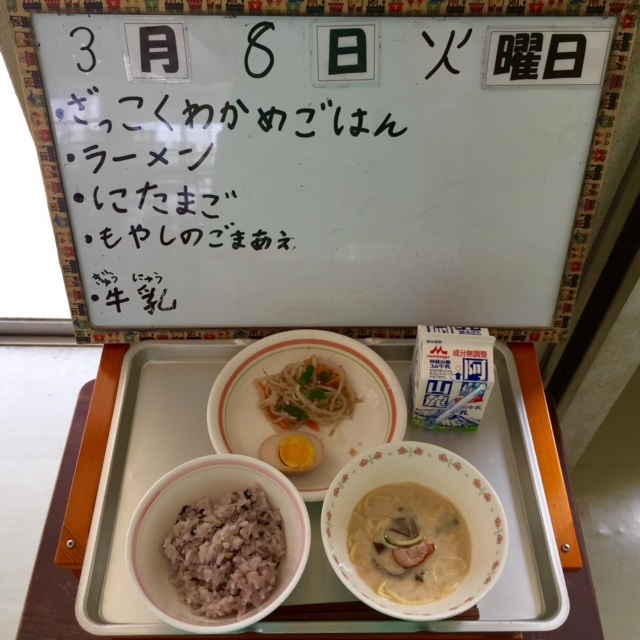 3月8日火曜日
・ざっこくわかめごはん
・ラーメン
・にたまご
・もやしのごまあえ
ぎゅうにゅう
・牛乳
成分無調整
阿蘇山麓